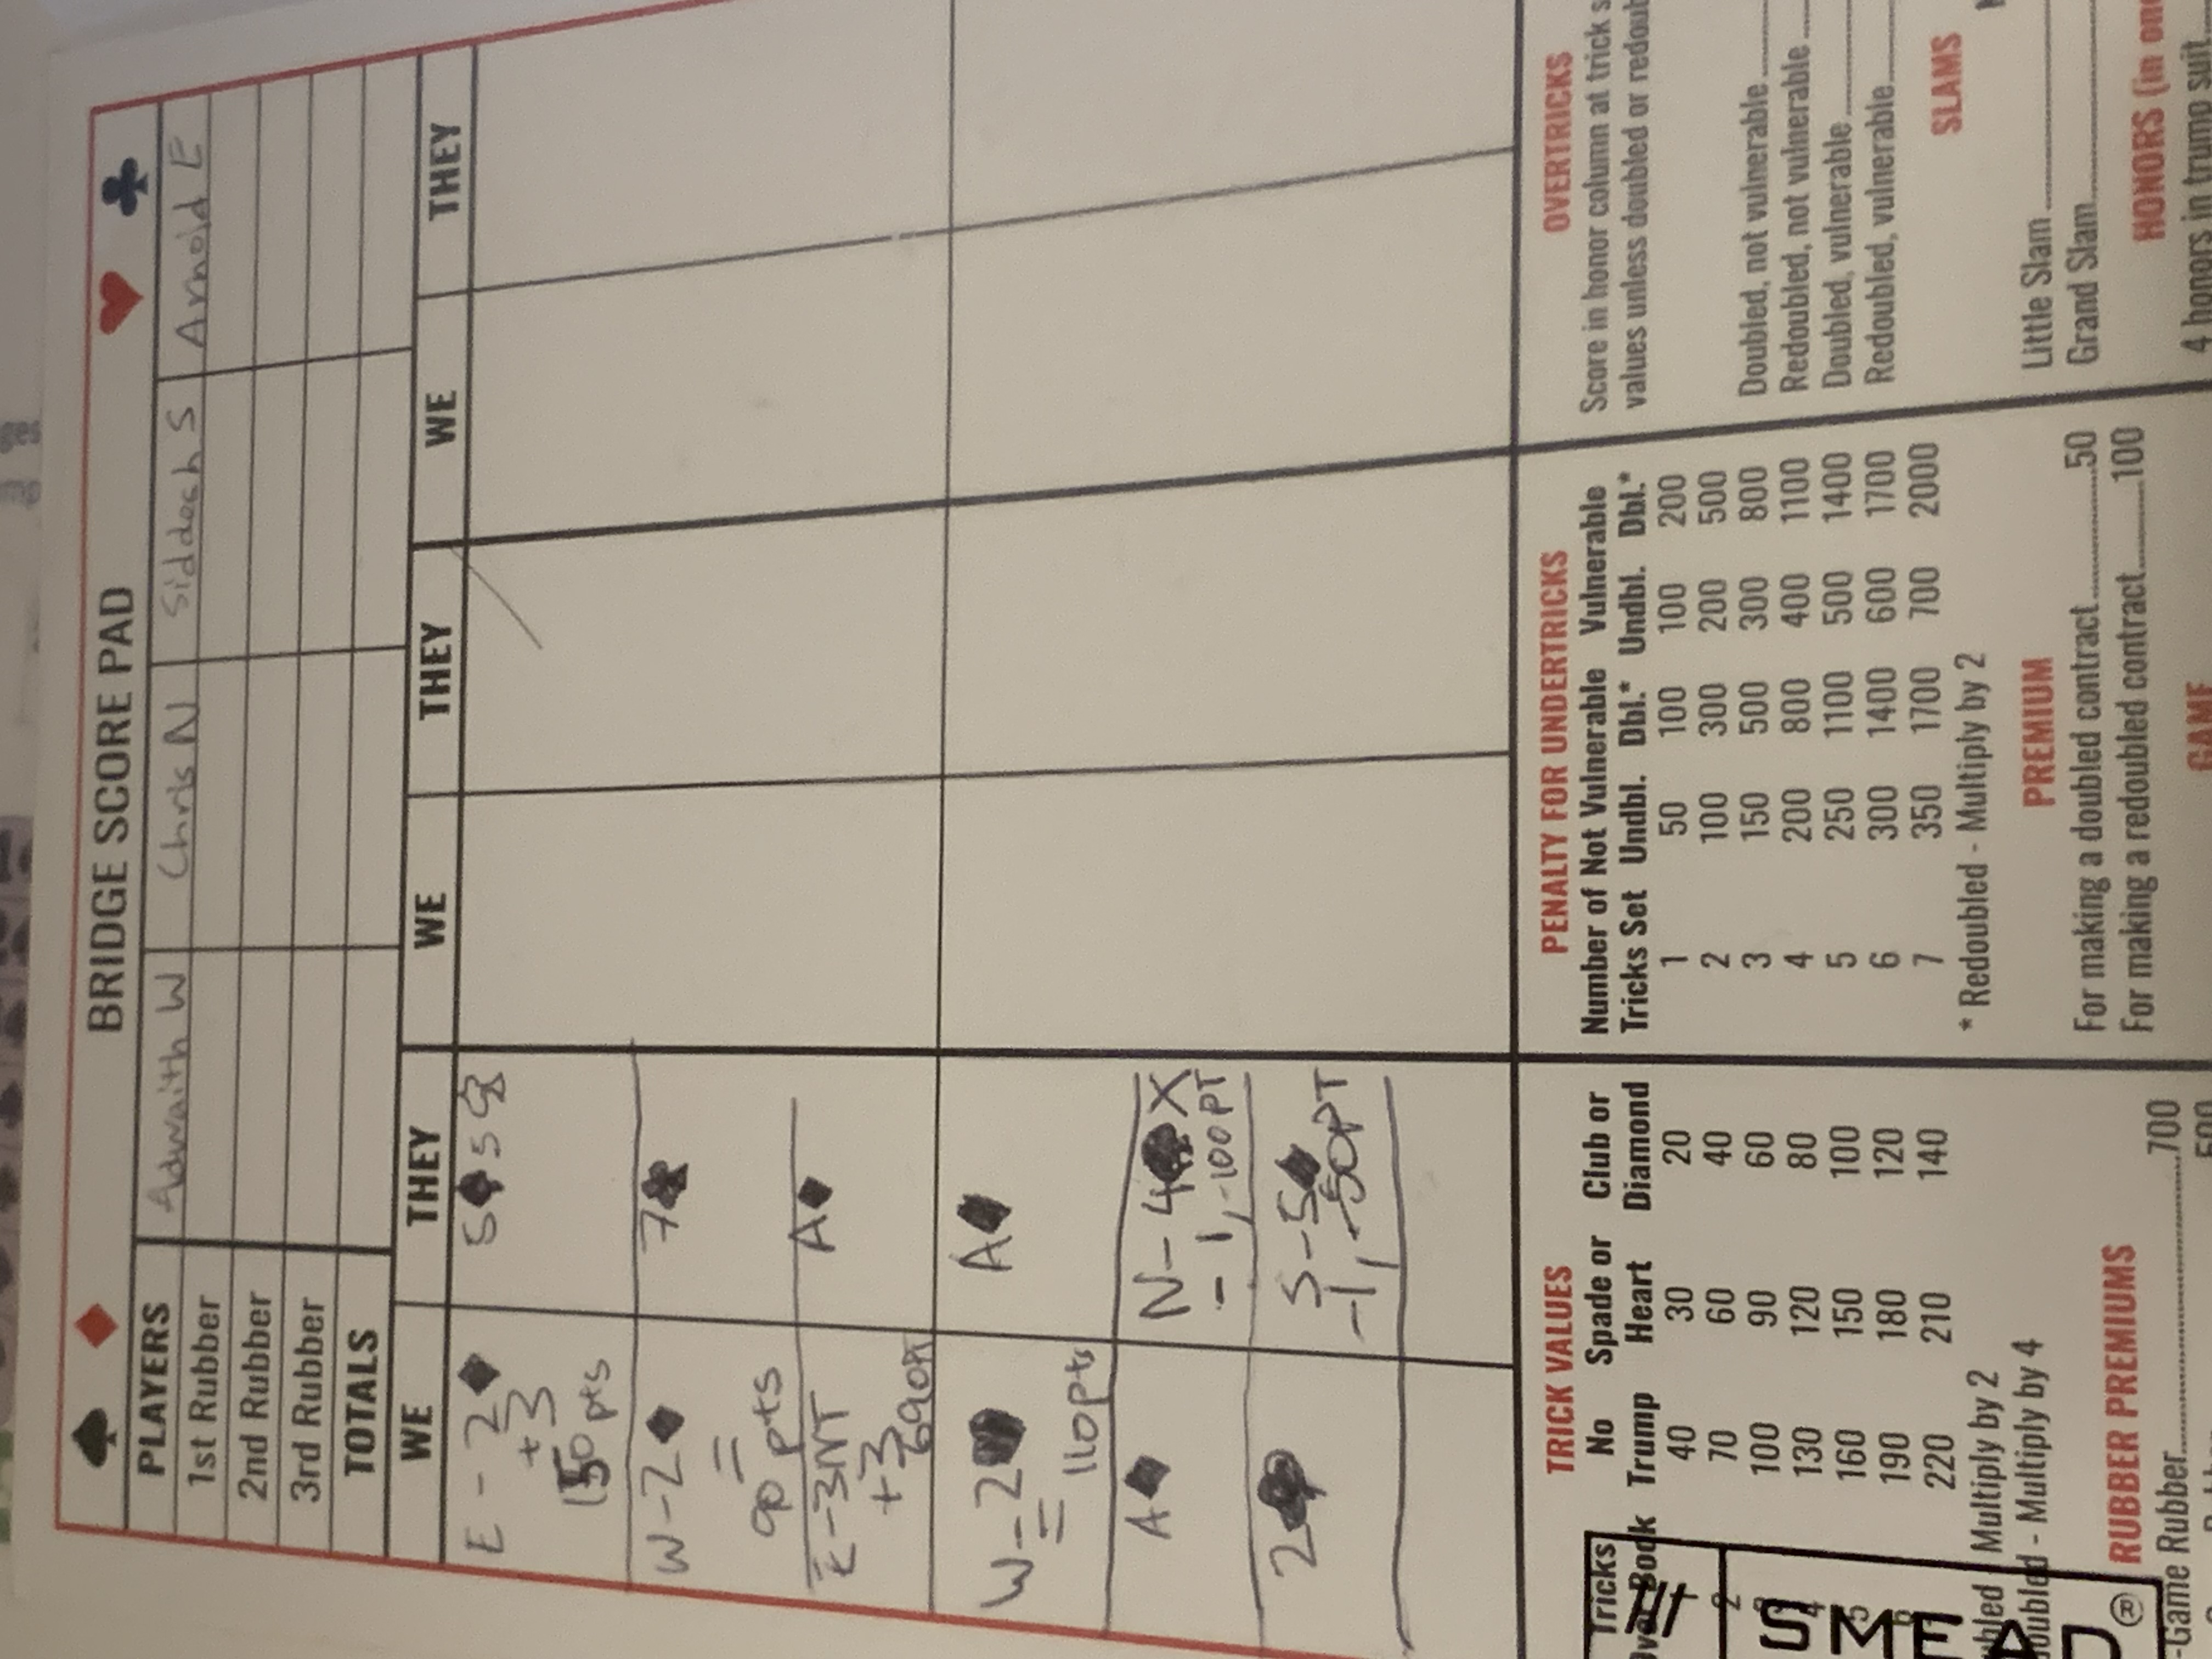 ♠ ♦ BRIDGE SCORE PAD ♥ ♣
PLAYERS Adwaith W Chris N Siddesh S Arnold E
1st Rubber
2nd Rubber
3rd Rubber
TOTALS
WE THEY WE THEY WE THEY
E - 2♦ 5♠ 5
+3
150 pts
W - 2♦ 7♣
=
90 pts
E - 3NT A♦
+3
690PT
W - 2♥ A♦
=
110pts
A♦ N - 4 X
- 1, -100 PT
2 S - 5♦
-1, -50PT
TRICK VALUES
Tricks No Spade or Club or
Over Book Trump Heart Diamond
40 30 20
2 70 60 40
100 90 60
4 130 120 80
5 160 150 100
6 190 180 120
220 210 140
- Multiply by 2
- Multiply by 4
RUBBER PREMIUMS
-Game Rubber 700
500
PENALTY FOR UNDERTRICKS
Number of Not Vulnerable Vulnerable
Tricks Set Undbl. Dbl.* Undbl. Dbl.*
1 50 100 100 200
2 100 300 200 500
3 150 500 300 800
4 200 800 400 1100
5 250 1100 500 1400
6 300 1400 600 1700
7 350 1700 700 2000
* Redoubled - Multiply by 2
PREMIUM
For making a doubled contract 50
For making a redoubled contract 100
GAME
OVERTRICKS
Score in honor column at trick
values unless doubled or
Doubled, not vulnerable
Redoubled, not vulnerable
Doubled, vulnerable
Redoubled, vulnerable
SLAMS
Little Slam
Grand Slam
HONORS (in
4 honors in trump suit
SMEAD®